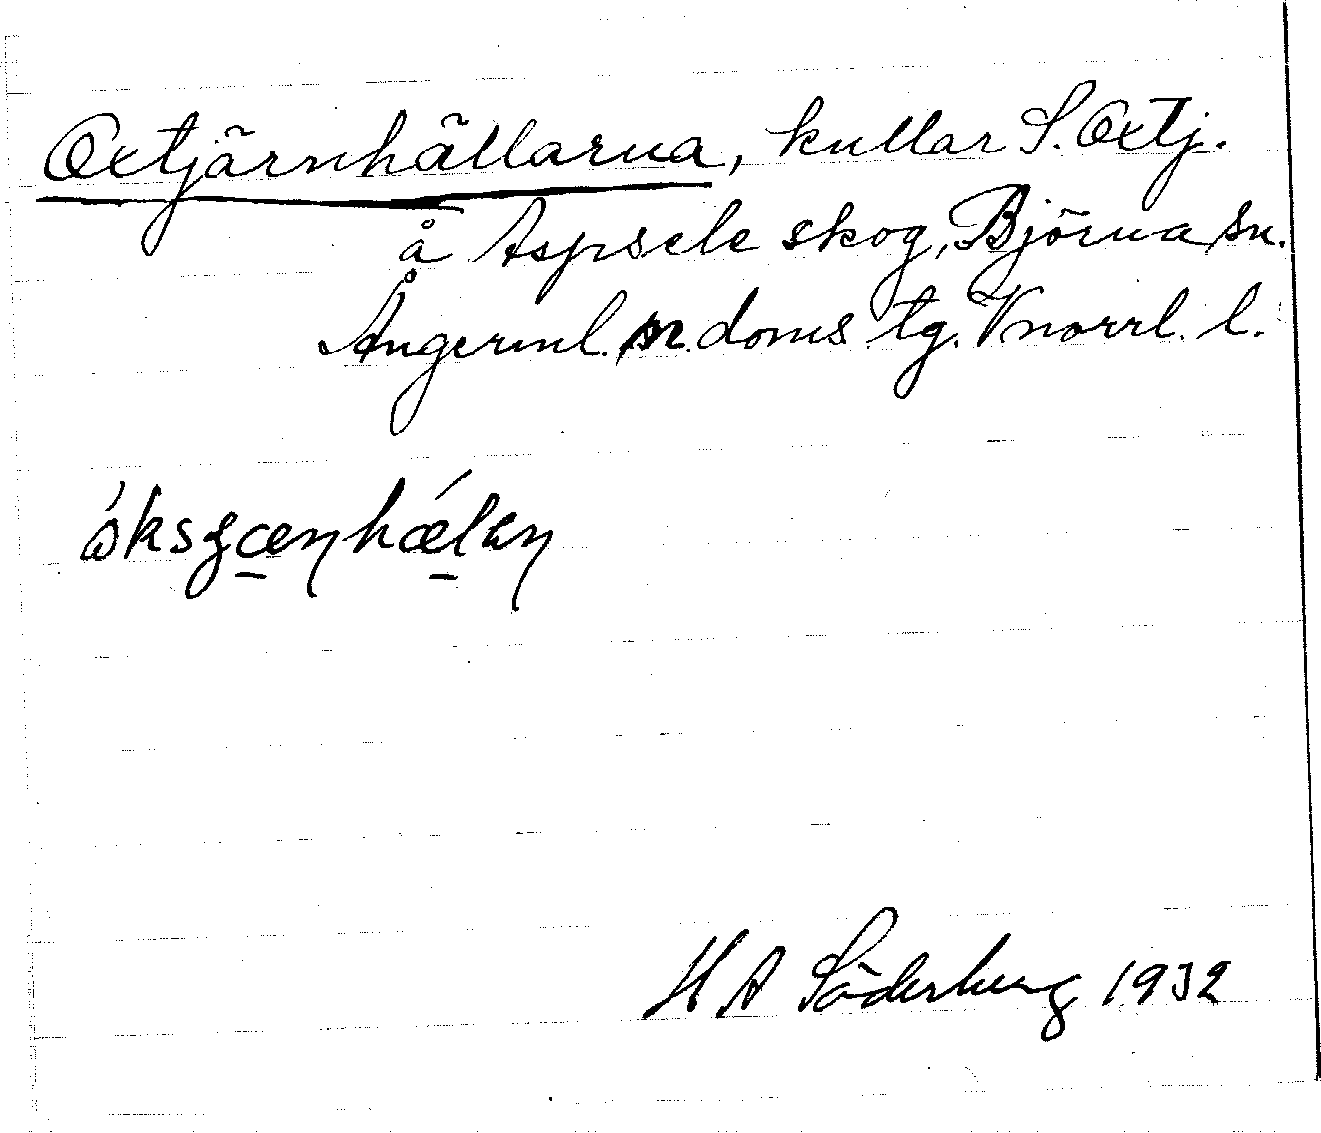 Oxtjärnhällarna, kullar S. Oxtj.
å Aspsele skog, Björna sn.
Ångerml. n. doms tg. Vnorrl. l.
H A Söderberg 1932